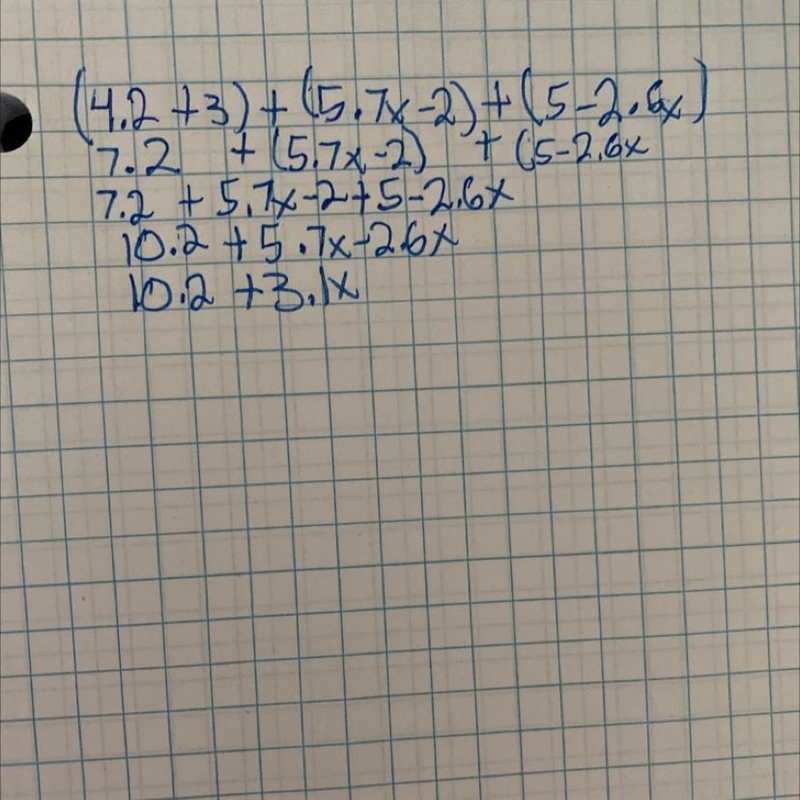 (4.2 +3) + (5.7x-2) + (5-2.6x)
7.2 + (5.7x-2) + (5-2.6x
7.2 + 5.7x-2+5-2.6x
10.2 +5.7x-2.6x
10.2 +3.1x